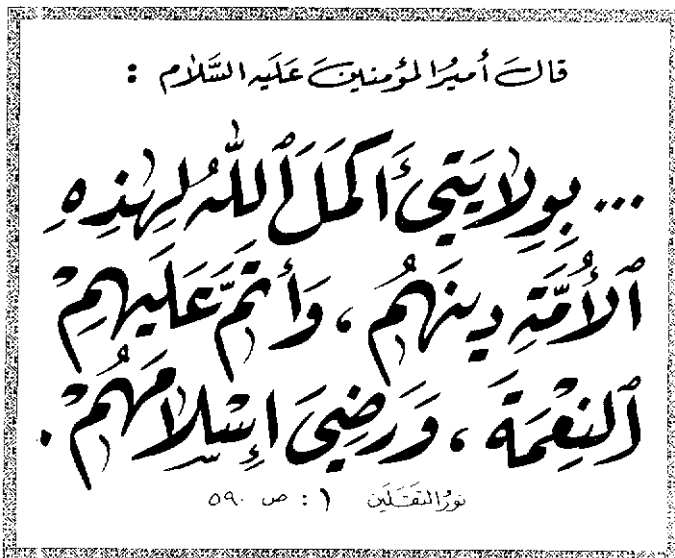 قال أميرُ المؤمنين عَلَيه السَّلام :
... بِوِلايَتي أَكمَلَ ٱللّٰهُ لِهٰذِهِ
ٱلأُمَّةِ دِينَهُم ، وَأَتَمَّ عَلَيهِمْ
ٱلنِعْمَةَ ، وَرَضِيَ إِسْلامَهُمْ .
نورُ الثقَلَين ١ : ص ٥٩٠